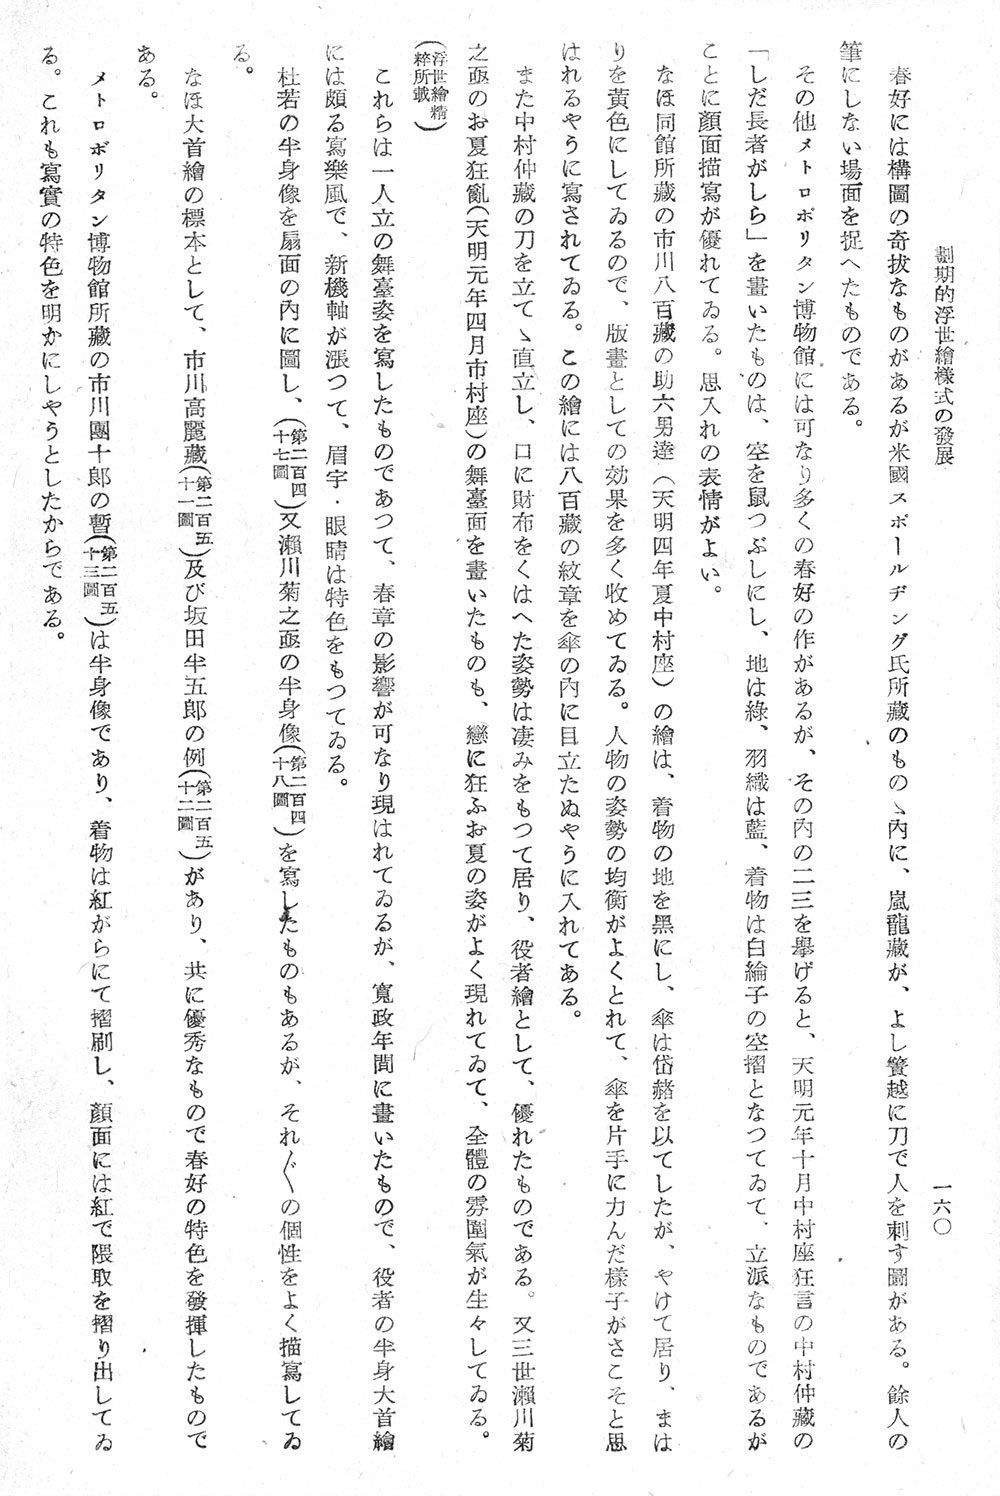 劃期的浮世繪樣式の發展
一六〇
春好には構圖の奇拔なものがあるが米國スポールヂング氏所藏のものゝ內に、嵐龍藏が、よし簀越に刀で人を刺す圖がある。餘人の
筆にしない場面を捉へたものである。
その他メトロポリタン博物館には可なり多くの春好の作があるが、その內の二三を擧げると、天明元年十月中村座狂言の中村仲藏の
「しだ長者がしら」を畫いたものは、空を鼠つぶしにし、地は綠、羽織は藍、着物は白綸子の空摺となつてゐて、立派なものであるが
ことに顏面描寫が優れてゐる。思入れの表情がよい。
なほ同館所藏の市川八百藏の助六男達（天明四年夏中村座）の繪は、着物の地を黑にし、傘は岱赭を以てしたが、やけて居り、まは
りを黃色にしてゐるので、版畫としての効果を多く收めてゐる。人物の姿勢の均衡がよくとれて、傘を片手に力んだ樣子がさこそと思
はれるやうに寫されてゐる。この繪には八百藏の紋章を傘の內に目立たぬやうに入れてある。
また中村仲藏の刀を立てゝ直立し、口に財布をくはへた姿勢は凄みをもつて居り、役者繪として、優れたものである。又三世瀨川菊
之亟のお夏狂亂（天明元年四月市村座）の舞臺面を畫いたものも、戀に狂ふお夏の姿がよく現れてゐて、全體の雰圍氣が生々してゐる。
（浮世繪精粹所載）
これらは一人立の舞臺姿を寫したものであつて、春章の影響が可なり現はれてゐるが、寬政年間に畫いたもので、役者の半身大首繪
には頗る寫樂風で、新機軸が漲つて、眉宇・眼睛は特色をもつてゐる。
杜若の半身像を扇面の內に圖し、（第二百四十七圖）又瀨川菊之亟の半身像（第二百四十八圖）を寫したものもあるが、それ〴〵の個性をよく描寫してゐ
る。
なほ大首繪の標本として、市川高麗藏（第二百五十一圖）及び坂田半五郎の例（第二百五十二圖）があり、共に優秀なもので春好の特色を發揮したもので
ある。
メトロポリタン博物館所藏の市川團十郎の暫（第二百五十三圖）は半身像であり、着物は紅がらにて摺刷し、顏面には紅で隈取を摺り出してゐ
る。これも寫實の特色を明かにしやうとしたからである。